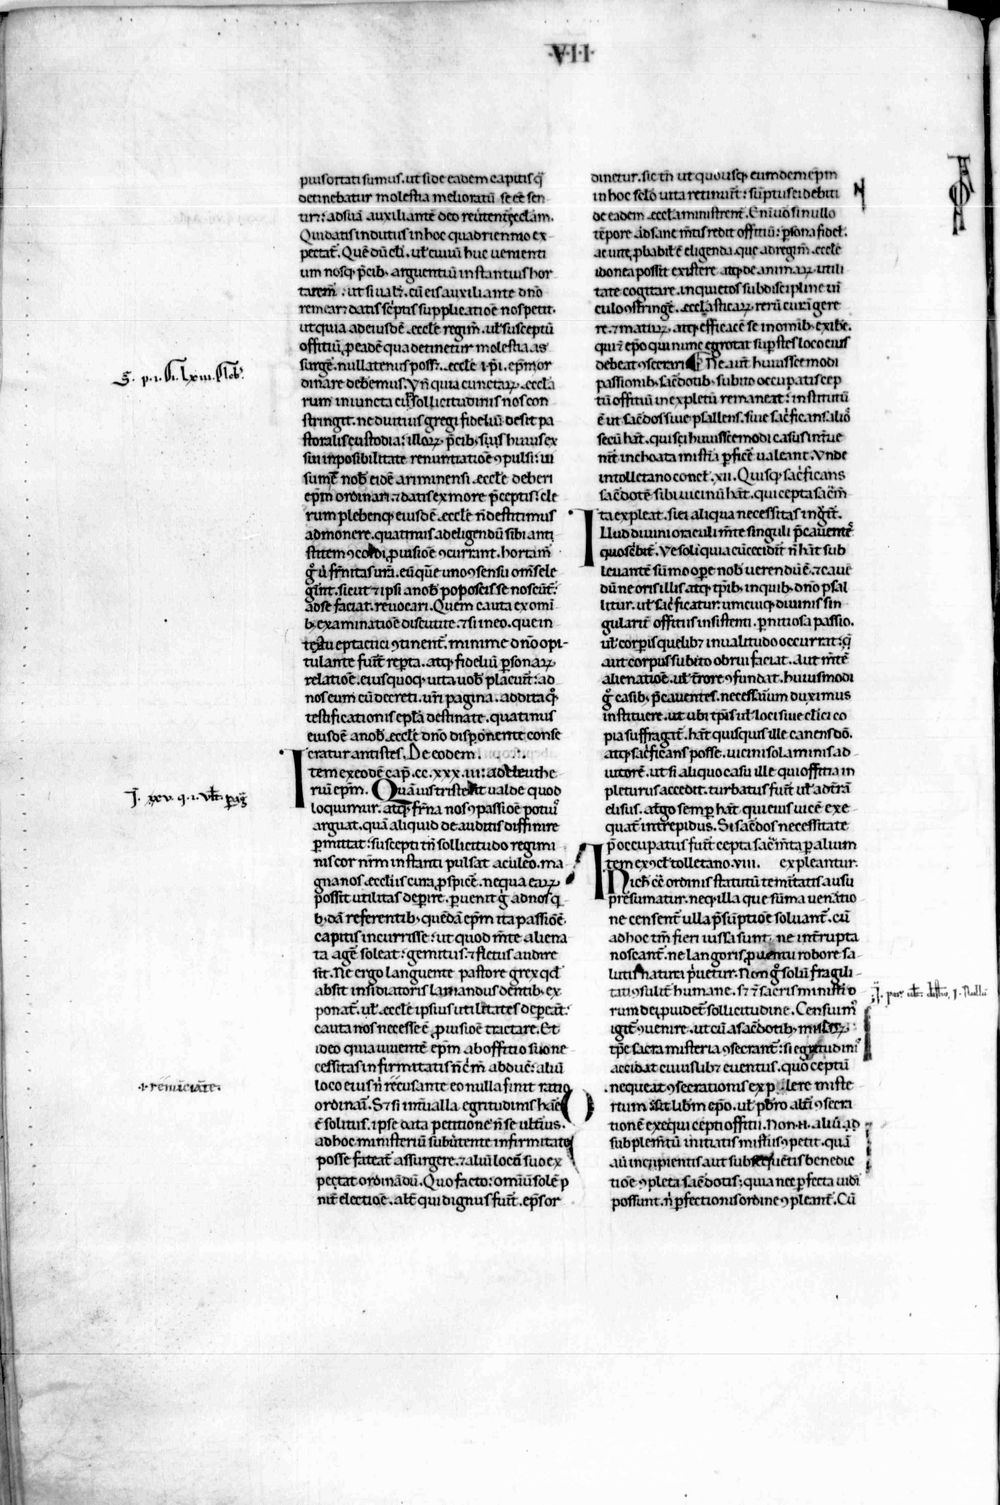 ·VII·
pui sortati sumus. ut si de eadem capitis q̃
detinebatur molestia melioratũ se eẽ sen
tir̃: ad suã auxiliante deo reũtent̃ ęcclam.
Qui datis indutiis in hoc quadriennio ex
pectat̃. Quẽ dũ cl̃i. ul̃ ciuiũ huc uenienti
um nosq; p̃cib; arguentiũ instantius hor
tarem̃: ut si ual&. cũ eis auxiliante dño
reme&. datis sc̃ptis supplicatioẽ nos petit.
ut quia ad eiusdẽ .ecclẽ regim̃. ul̃ susceptũ
offitiũ. p eadẽ qua detinetur molestia. as
surge. nullatenus poss&. .ecclẽ ipi. epm̃ or
dinare debemus. Vñ quia cunctaꝝ. eccla
rum iniuncta ei sollicitudinis nos con
stringit. ne diutius gregi fideliũ desit pa
storalis custodia: illoꝝ p̃cib; suis huius ex
sui inposibilitate renuntiatioẽ ꝯpulsi: ui
sum ẽ nob̃ eidẽ ariminensi .ecclẽ deberi
epm̃ ordinari. & datis ex more p̃ceptis: cle
rum plebemq; eiusdẽ .ecclẽ ñ destitimus
admonere. quatinus ad eligendũ sibi anti
stitem ꝯcordi puisioẽ ꝯcurrant. hortam̃
g̃ ũ fr̃nitas ur̃a. eũ quẽ uno ꝯsensu om̃s ele
gĩnt. sicut & ipsi a nob̃ poposcisse noscunt̃:
ad se faciat reuocari. Quem cauta ex omi
b; examinatioẽ discutite. & si in eo. que in
textu eptatici ꝯtinent̃. minime dño opi-
tulante fuĩnt rep̃ta. atq; fideliũ p̃sonaꝝ
relatioẽ. eius quoq; uita uob̃ placuĩt: ad
nos eum cũ decreti. ur̃i pagina. addita q̃
testificationis epl̃a destinate. quatinus
eiusdẽ a nob̃ .ecclẽ dño disponente conse
cratur antistes. De eodem.
Item ex eodẽ cap̃. cc. xxx. iii: ad eleuthe
riũ epm̃. Quãuis triste sit ualde quod
loquimur. atq; fr̃na nos ꝯpassioẽ potiũ
arguat. quã aliquid de auditis diffinire
p̃mittat: suscepti tñ sollicitudo regimi
nis cor nr̃m instanti pulsat aculeo. ma
gna nos .ecclis cura p̃spicẽ. ne qua eaꝝ
possit utilitas depire. p̃uenit g̃ ad nos q
b;dã referentib; quẽdã epm̃ ita passioẽ
capitis incurrisse: ut quod m̃te aliena
ta agẽ soleat: gemitus. & fletus audire
sit. Ne ergo languente pastore grex qd̃
absit insidiatoris laniandus dentib; ex
ponat̃. ul̃ .ecclẽ ipsius utilitates depeant̃:
cauta nos necesse ẽ puisioẽ tractare. Et
ideo quia uiuentẽ epm̃ ab offitio suo ne
cessitas infirmitatis ñ crĩm abducẽ: aliũ
loco eius ñ recusante eo nulla sinit ratio
ordinari. S& si int̃ualla egritudinis hãe
ẽ solitus. ipse data petitione ñ se ulterius.
ad hoc ministeriũ subũtente infirmitate
posse fateat̃ assurgere. & aliũ loco suo ex
pectat ordinãdũ. Quo facto: omniũ solẽp
nit̃ electioẽ. alt̃ qui dignus fuĩt. ep̃s or
dinetur. sic tñ ut quousq; eumdem epm̃
in hoc sclo uita retinuĩt: suptus ei debiti
de eadem .eccla ministrent̃. Eni uo si nullo
tẽpore ad sane m̃tis redit offitiũ: p̃sona fidel̃.
ac uite pbabil̃ ẽ eligenda. que ad regim̃. .ecclẽ
idonea possit existere. atq; de animaꝝ. utili
tate cogitare. inquietos sub discipline uĩ
culo ꝯstringẽ. .ecclasticaꝝ. rerũ curã gere
re. & matiuꝝ. atq; efficacẽ se in omĩb; exibẽ.
qui & epo qui nunc egrotat sup̃stes loco eius
debeat ꝯsecrari. De aut̃ huiuscemodi
passionib; sac̃dotib; subito occupatis cep
tũ offitiũ inexpletũ remaneat: institutũ
ẽ ut sac̃dos siue psallens. siue sac̃ficans aliõ
secũ hãt. qui sq̃ huiuscemodi casus int̃ue
nĩt inchoata mistĩa p̃ficẽ ualeant. Vnde
in tolletano concl̃. xii. Quisq; sac̃ficans
sac̃dotẽ sibi uicinũ hãt. qui cepta sac̃m̃
ta expleat. si ei aliqua necessitas ing̃it.
Illud diuini oraculi m̃te singuli p̃cauentẽ
quo sc̃bit̃. Ve soli quia cũ ceciderit ñ hãt sub
leuantẽ sũmo ope nob̃ uerendũ ẽ. & caue
dũ ne oris illis. atq; tp̃ib; in quib; dño psal
litur. ul̃ sac̃ficatur: unicuiq; diuinis sin
gularit̃ offitiis insistenti. p̃nitiosa passio.
ul̃ corpis quelib& inualitudo occurrat: q̃
aut corpus subito obrui faciat. aut m̃tẽ
alienatioẽ. ul̃ t̃rore ꝯfundat. huiusmodi
g̃ casib; p̃cauentes. necessariũ duximus
instituere. ut ubi tp̃is ul̃ loci siue cl̃ici co
pia suffragat̃. hãt quisquis ille canens dõ.
atq; sac̃ficans posse. uicini solaminis ad
iutorẽ. ut si aliquo casu ille qui offitia im
pleturus accedit. turbatus fuĩt ul̃ ad t̃rã
elisus. a tergo semp̃ hãt. qui eius uicẽ exe
quat̃ intrepidus. Si sac̃dos necessitate
p̃occupatus fuĩt cepta sac̃m̃ta p alium
Item ex ꝯcl̃ tolletano. viii. expleantur.
Nich̃ cẽ ordinis statutũ temĩtatis ausu
presumatur. neq; illa que sũma uenatio
ne censent̃ ulla p̃sũptioẽ soluant̃. cũ
ad hoc tñ fieri iussa sunt. ne int̃rupta
noscant̃. ne langoris puentu robore sa
lutis natura p̃uetur. Non g̃ solũ fragili-
tati ꝯsulit̃ humane. s& & sacris ministio
rum dei puidet̃ sollicitudine. Censuim̃
igit̃ ꝯuenire. ut cũ a sac̃dotib; missaꝝ
tp̃e sacra misteria ꝯsecrant̃: si egritudinĩ
accidat cuiuslib& euentus. quo ceptũ
nequeat ꝯsecrationis explere miste
rium: sit libm̃ epo. ul̃ pb̃ro alt̃i ꝯsecra
tionẽ exequi cepti offitii. Non .n. aliũ. ad
supplem̃tũ initiatis missiis ꝯpetit. quã
aũ incipientis aut subsequẽtis benedic
tioẽ ꝯpleta sac̃dotis: quia nec p̃fecta uidi
possunt. ñ p̃fectionis ordine ꝯpleant̃. Cũ